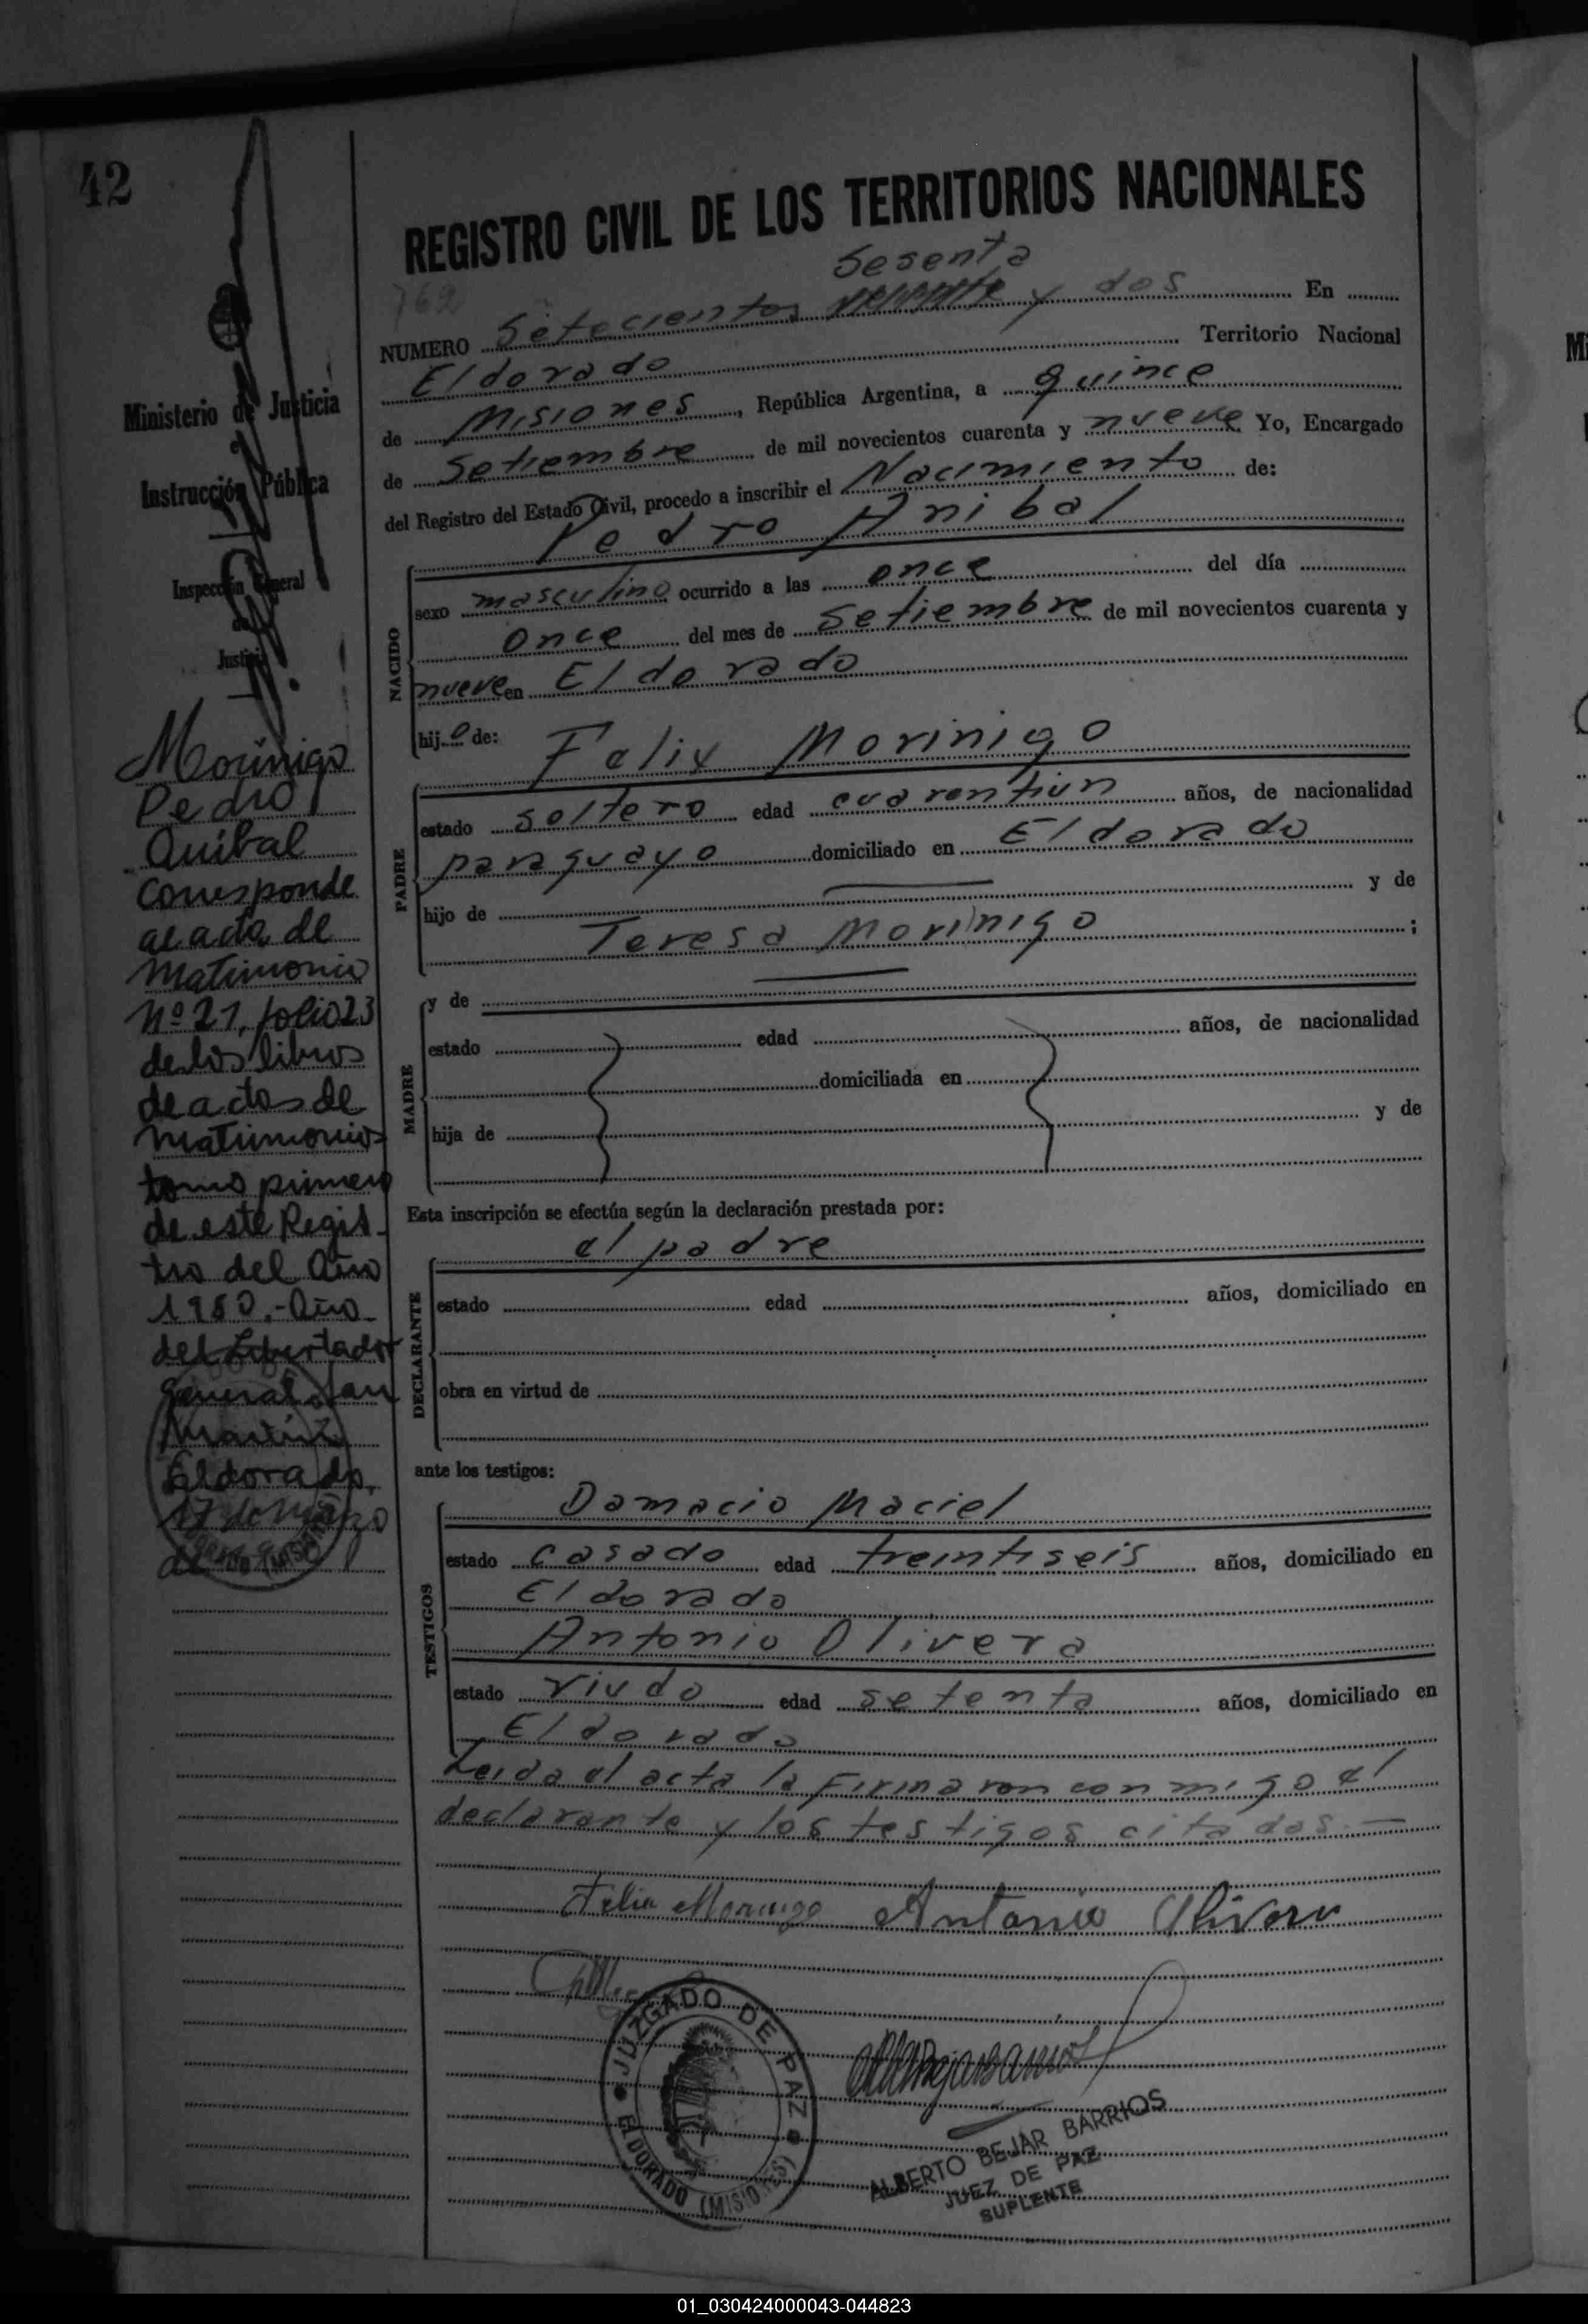 42
REGISTRO CIVIL DE LOS TERRITORIOS NACIONALES
762
Sesenta
NUMERO Setecientos y dos En
Eldorado Territorio Nacional
de Misiones, República Argentina, a quince
de Setiembre de mil novecientos cuarenta y nueve Yo, Encargado
del Registro del Estado Civil, procedo a inscribir el Nacimiento de:
Pedro Anibal
NACIDO
sexo masculino ocurrido a las once del día
once del mes de Setiembre de mil novecientos cuarenta y
nueve en Eldorado
hijo de: Felix Morinigo
PADRE
estado soltero edad cuarentiun años, de nacionalidad
paraguayo domiciliado en Eldorado
hijo de y de
Teresa Morinigo ;
MADRE
y de
estado edad años, de nacionalidad
domiciliada en
hija de y de
Esta inscripción se efectúa según la declaración prestada por:
el padre
DECLARANTE
estado edad años, domiciliado en
obra en virtud de
ante los testigos:
Damacio Maciel
TESTIGOS
estado casado edad treintiseis años, domiciliado en
Eldorado
Antonio Olivera
estado viudo edad setenta años, domiciliado en
Eldorado
Leida el acta la firmaron conmigo el
declarante y los testigos citados.—
Felix Morinigo Antonio Olivera
JUZGADO DE PAZ
ELDORADO (MISIONES)
ALBERTO BEJAR BARRIOS
JUEZ DE PAZ
SUPLENTE
Ministerio de Justicia
Instrucción Pública
Inspección General
de
Justicia
Morinigo
Pedro
Anibal
Corresponde
al acta de
Matrimonio
Nº 21, folio 23
de los libros
de actas de
Matrimonios
tomo primero
de este Regis-
tro del Año
1950.- Año
del Libertador
General San
Martín
Eldorado,
17 de Marzo
de
01_030424000043-044823